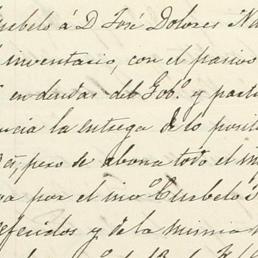 Curbelo á D José Dolores Na
l inventario, con el pasivo
en deudas del Gob.º y parti
ncia la entrega de lo posit
es, pero se abona todo el im
va por el ino Curbelo
eferidos y de la misma